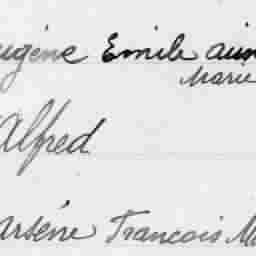 Eugène Emile aim
Marie
Alfred
Arsène Francois M